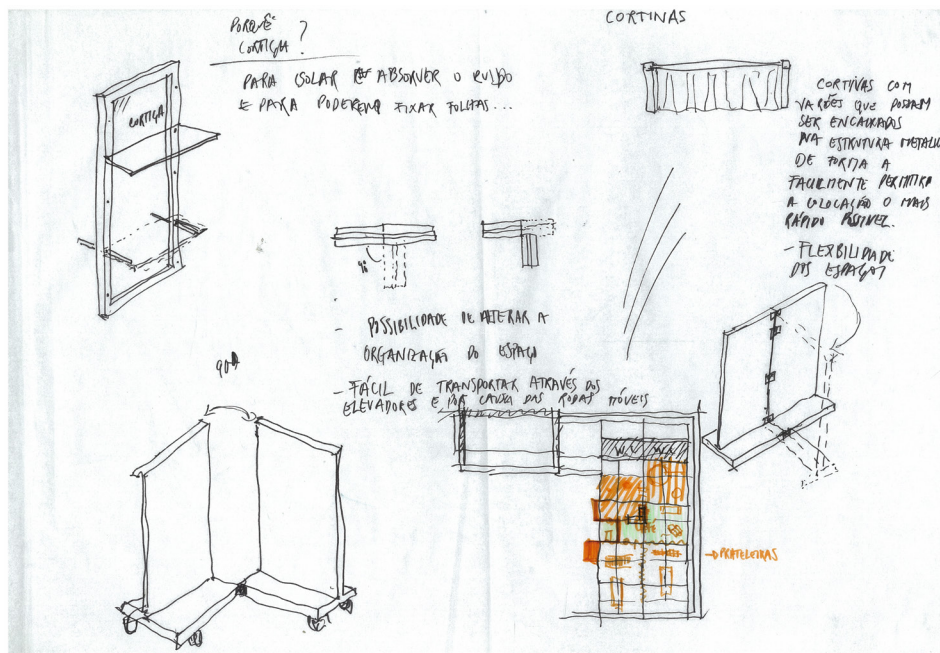 PORQUÊ
CORTIÇA ?
PARA ISOLAR E ABSORVER O RUÍDO
E PARA PODEREM FIXAR FOLHAS...
CORTIÇA
CORTINAS
CORTINAS COM
VARÕES QUE POSSAM
SER ENCAIXADOS
NA ESTRUTURA METALIC
DE FORMA A
FACILMENTE PERMITIR
A COLOCAÇÃO O MAIS
RÁPIDO POSSIVEL.
- FLEXBILIDADE
DOS ESPAÇOS
- POSSIBILIDADE DE ALTERAR A
ORGANIZAÇÃO DO ESPAÇO
- FÁCIL DE TRANSPORTAR ATRAVÉS DOS
ELEVADORES E POR CAUSA DAS RODAS MÓVEIS
90º
PRATELEIRAS